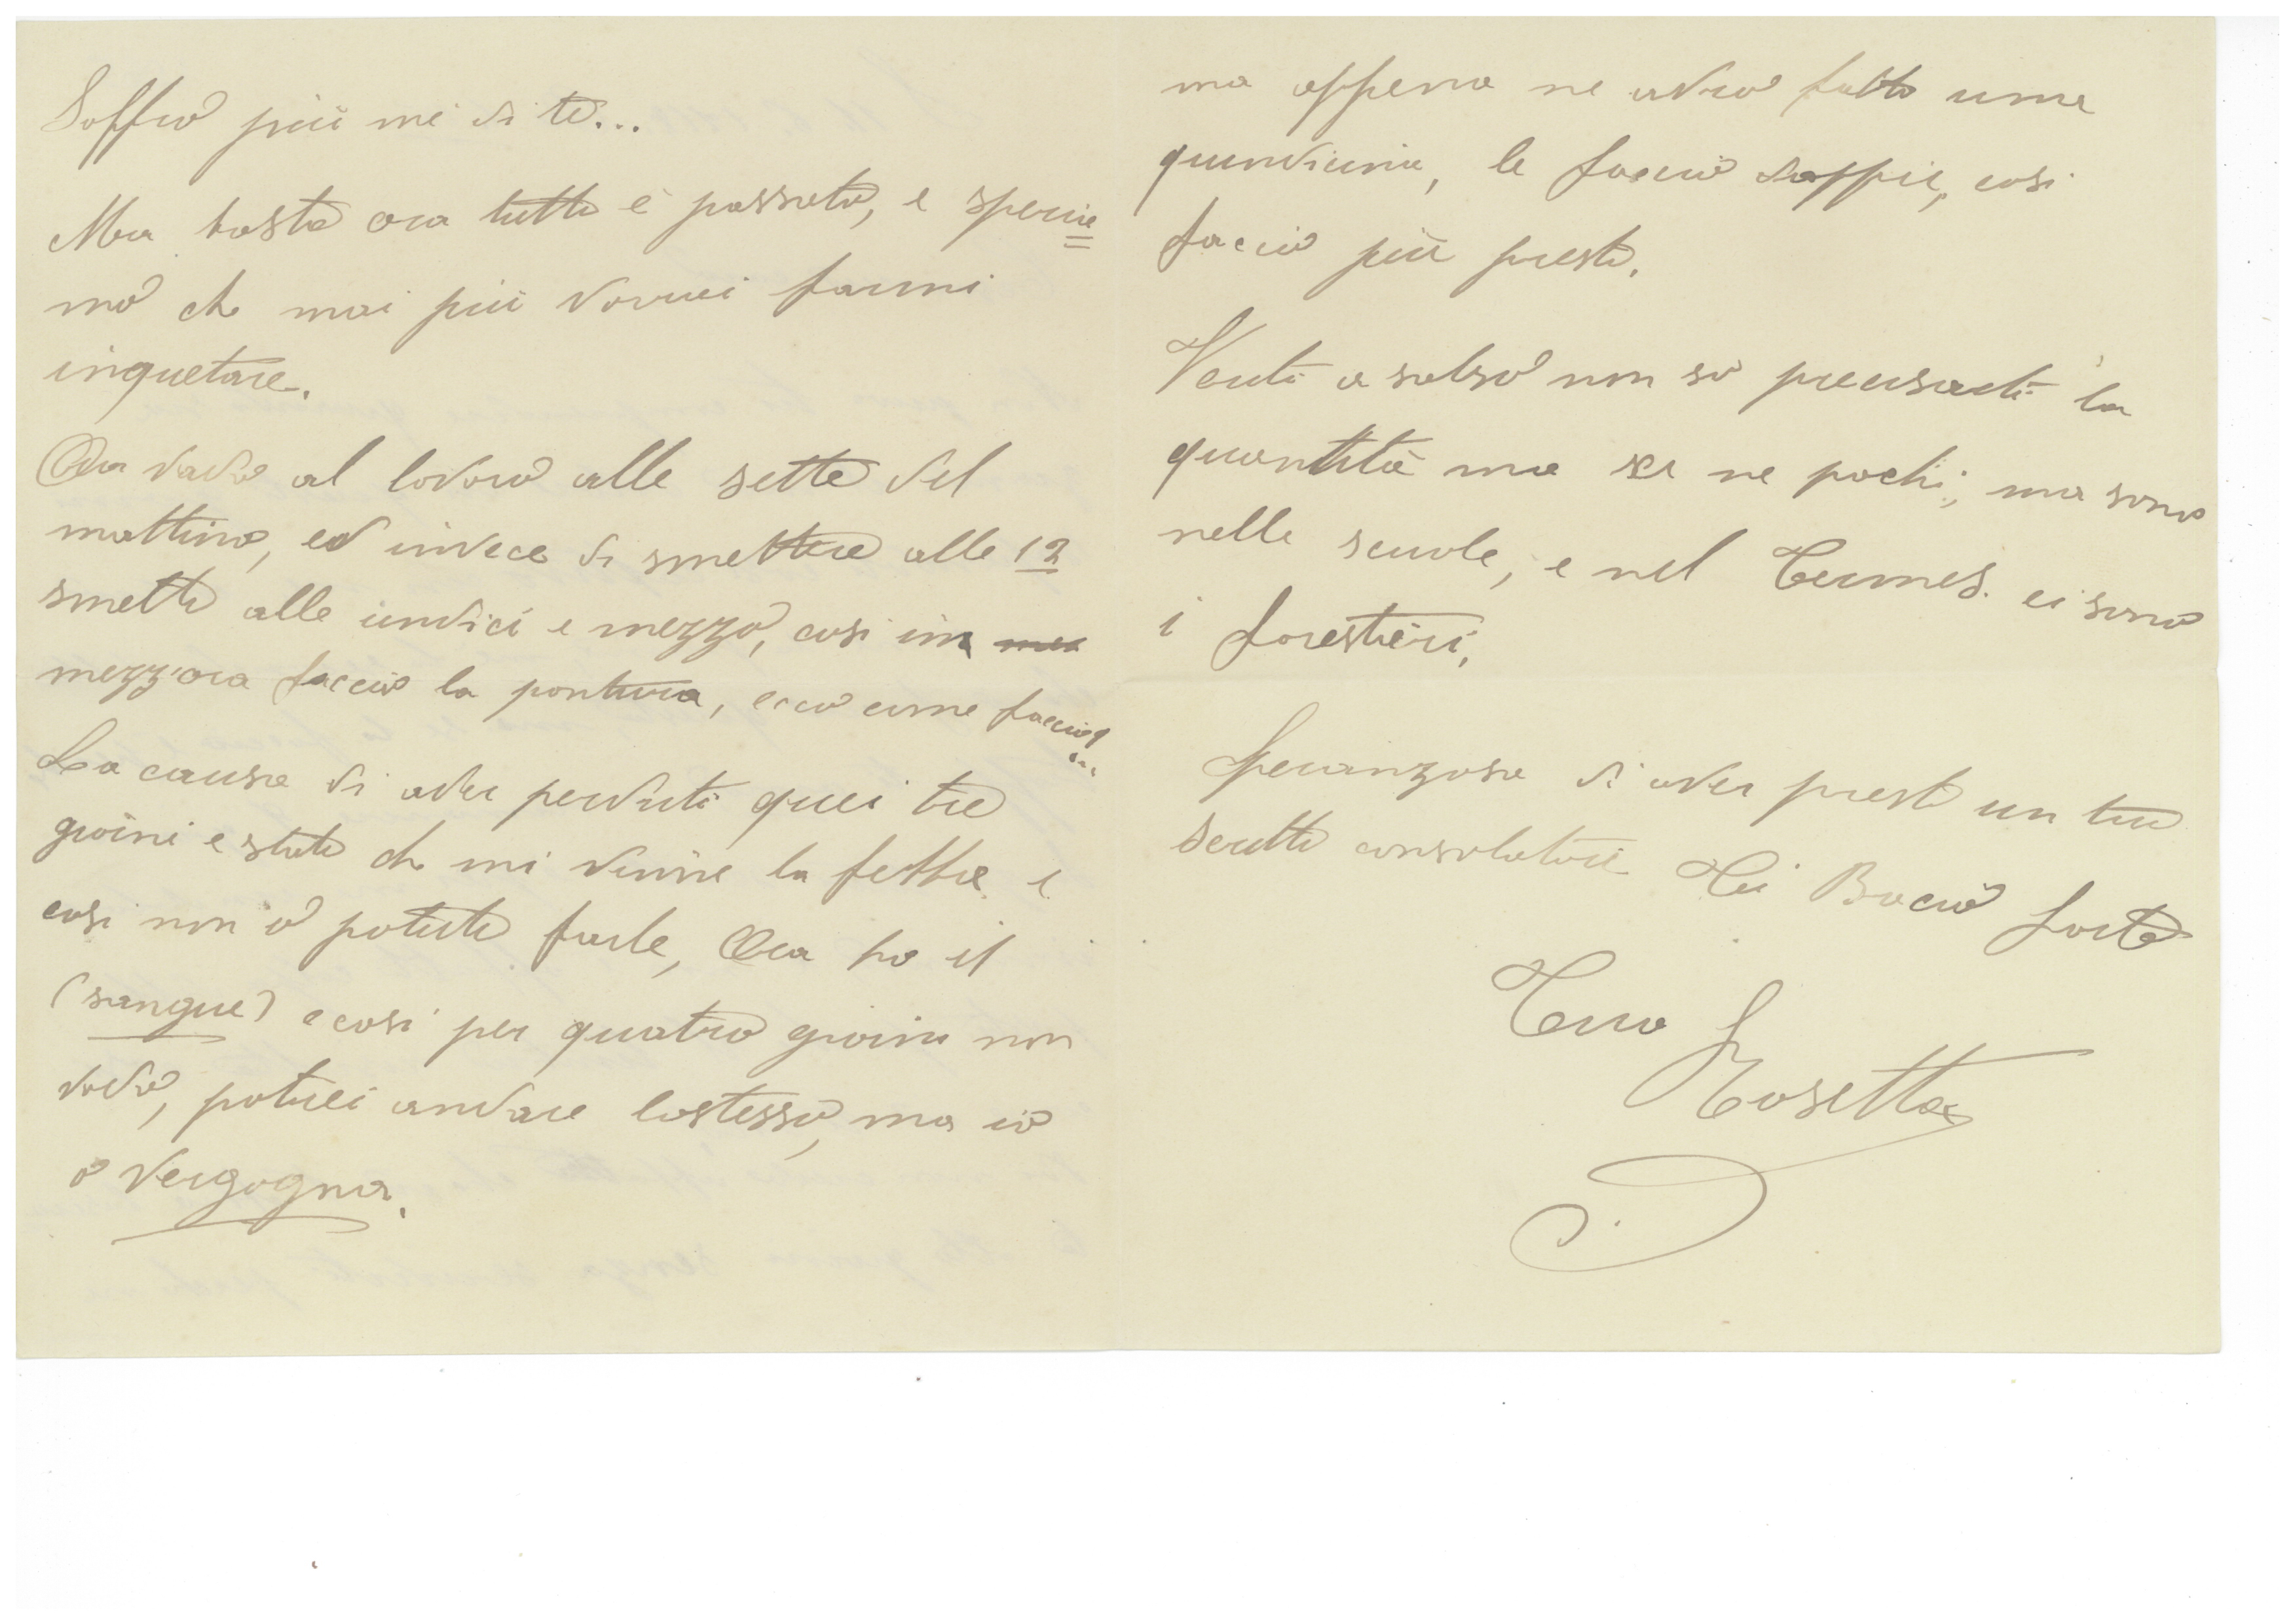 Soffro più me di te...
Ma basta ora tutto è passato, e speria=
mo che mai più vorrai farmi
inquetare.
Ora vado al lavoro alle sette del
mattino, ed invece di smettere alle 12
smetto alle undici e mezzo, cosi in
mezz'ora faccio la pontura, ecco come faccio!...
La causa di aver perduti quei tre
giorni e stato che mi venne la febbre e
cosi non ò potuto farle, Ora ho il
(sangue) e cosi per quatro giorni non
vado, potrei andare lostesso, ma io
ò vergogna.
ma appena ne avrò fatto una
quindicina, le faccio doppie, cosi
faccio più presto.
Venuti a salso non so precisarti la
quantità ma se ne pochi, ma sono
nelle scuole, e nel Termes. ci sono
i forestieri.
Speranzosa di aver presto un tuo
scritto consolatore Ti Bacio forte
Tua
Rosetta